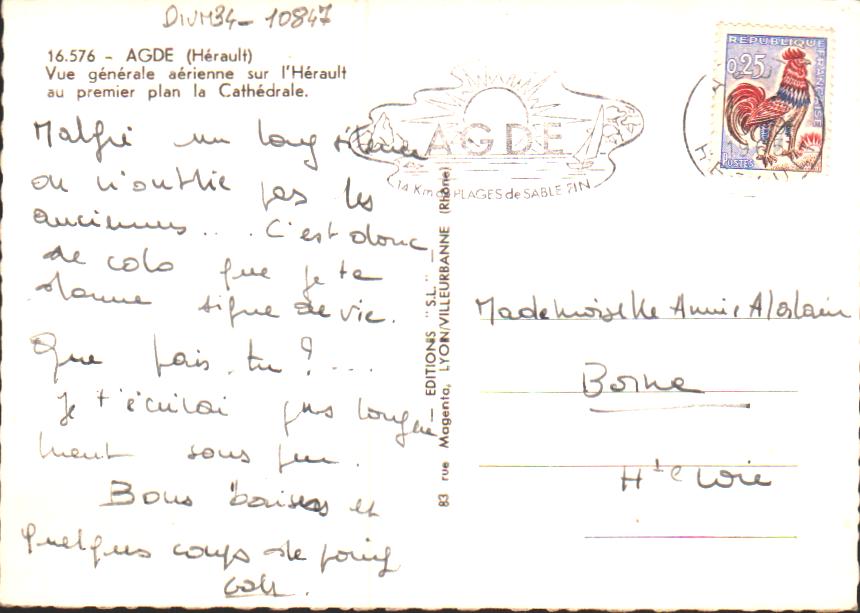 DIVM34-10847
16.576 - AGDE (Hérault)
Vue générale aérienne sur l'Hérault
au premier plan la Cathédrale.
Malgré un long silence
on n'oublie pas les
anciennes... C'est donc
de colo que je te
donne signe de vie.
Que fais-tu ? ...
Je t'écrirai plus longue
ment sous peu.
Bons baisers et
quelques coups de poing
83 rue Magenta, LYON/VILLEURBANNE (Rhône)
— EDITIONS "S.L." —
AGDE
14 Km de PLAGES de SABLE FIN
REPUBLIQUE FRANÇAISE
0,25
POSTES
Mademoiselle Annie
Borne
Hte Loire